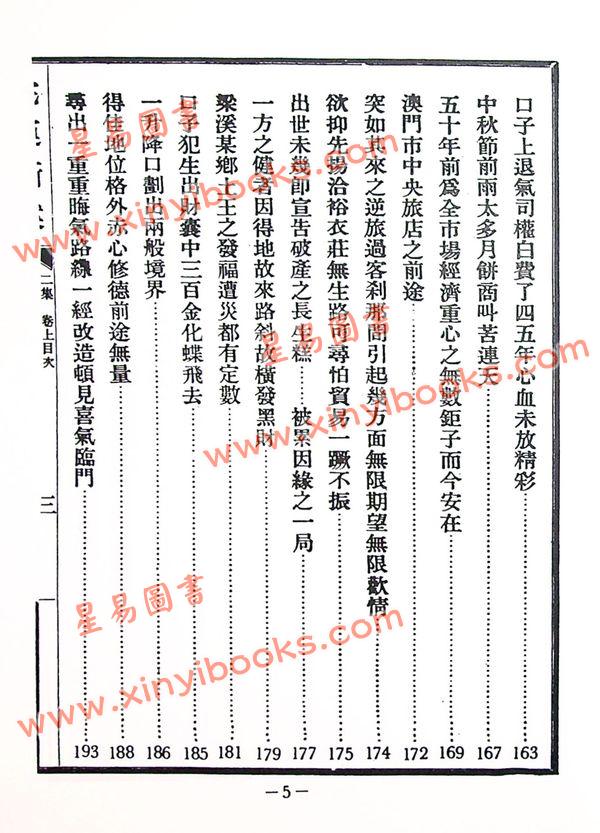 口子上退氣司權白費了四五年心血未放精彩……163
中秋節前雨太多月餅商叫苦連天……167
五十年前爲全市場經濟重心之無數鉅子而今安在……169
澳門市中央旅店之前途……172
突如其來之逆旅過客刹那間引起幾方面無限期望無限歡情……174
欲抑先揚洽裕衣莊無生路可尋怕貿易一蹶不振……175
出世未幾即宣告破產之長生糕……被累因緣之一局……177
一方之健者因得地故來路斜故橫發黑財……179
梁溪某鄉土王之發福遭災都有定數……181
口子犯生出財囊中三百金化蝶飛去……185
一升降口劃出兩般境界……186
得佳地位格外赤心修德前途無量……188
尋出一重重晦氣路線一經改造頓見喜氣臨門……193
二集 卷上目次
三
—5—
星易圖書
www.xinyibooks.com
星易圖書
www.xinyibooks.com
星易圖書
www.xinyibooks.com